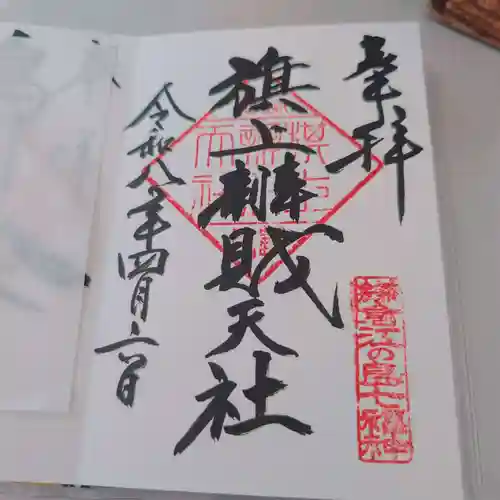 奉拝
旗上辨財天社
令和八年四月六日
鎌倉江の島七福神